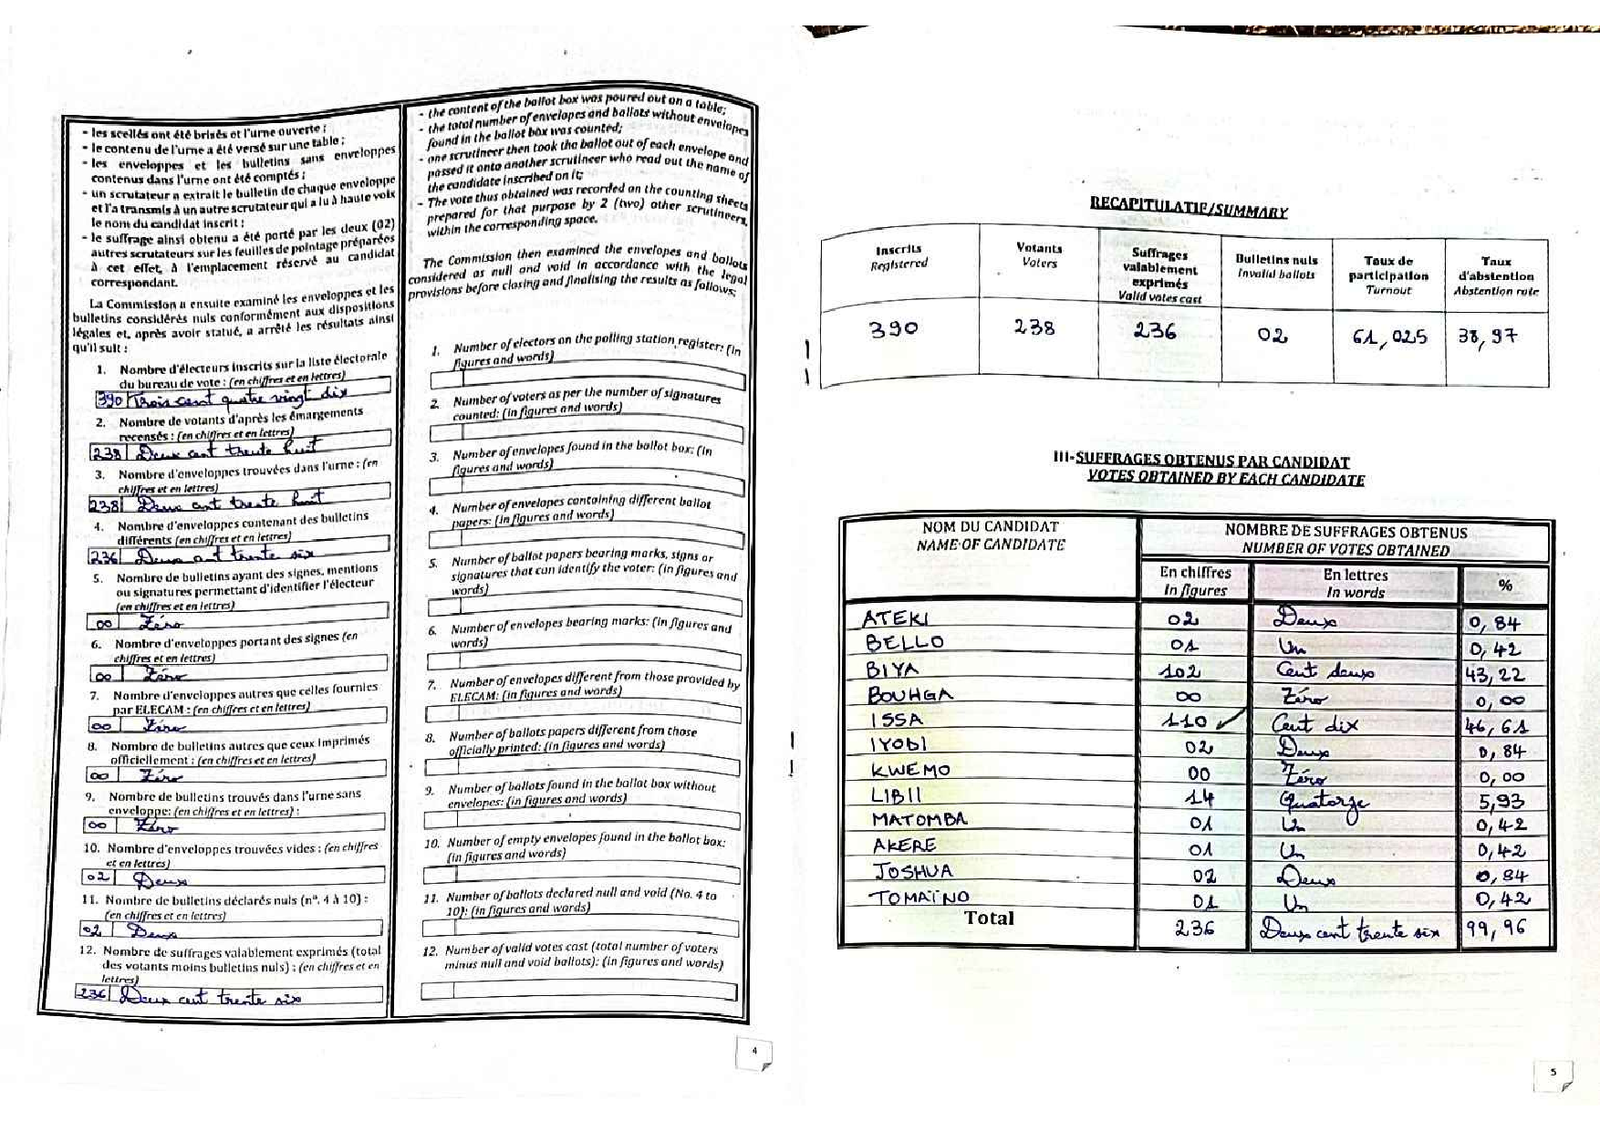 - les scellés ont été brisés et l'urne ouverte ;
- le contenu de l'urne a été versé sur une table ;
- les enveloppes et les bulletins sans enveloppes
contenus dans l'urne ont été comptés ;
- un scrutateur a extrait le bulletin de chaque enveloppe
et l'a transmis à un autre scrutateur qui a lu à haute voix
le nom du candidat inscrit ;
- le suffrage ainsi obtenu a été porté par les deux (02)
autres scrutateurs sur les feuilles de pointage préparées
à cet effet, à l'emplacement réservé au candidat
correspondant.
La Commission a ensuite examiné les enveloppes et les
bulletins considérés nuls conformément aux dispositions
légales et, après avoir statué, a arrêté les résultats ainsi
qu'il suit :
1. Nombre d'électeurs inscrits sur la liste électorale
du bureau de vote : (en chiffres et en lettres)
390 Trois cent quatre vingt dix
2. Nombre de votants d'après les émargements
recensés : (en chiffres et en lettres)
238 Deux cent trente huit
3. Nombre d'enveloppes trouvées dans l'urne : (en
chiffres et en lettres)
238 Deux cent trente huit
4. Nombre d'enveloppes contenant des bulletins
différents (en chiffres et en lettres)
236 Deux cent trente six
5. Nombre de bulletins ayant des signes, mentions
ou signatures permettant d'identifier l'électeur
(en chiffres et en lettres)
00 Zéro
6. Nombre d'enveloppes portant des signes (en
chiffres et en lettres)
00 Zéro
7. Nombre d'enveloppes autres que celles fournies
par ELECAM : (en chiffres et en lettres)
00 Zéro
8. Nombre de bulletins autres que ceux imprimés
officiellement : (en chiffres et en lettres)
00 Zéro
9. Nombre de bulletins trouvés dans l'urne sans
enveloppe: (en chiffres et en lettres) :
00 Zéro
10. Nombre d'enveloppes trouvées vides : (en chiffres
et en lettres)
02 Deux
11. Nombre de bulletins déclarés nuls (n°. 4 à 10) :
(en chiffres et en lettres)
02 Deux
12. Nombre de suffrages valablement exprimés (total
des votants moins bulletins nuls) : (en chiffres et en
lettres)
236 Deux cent trente six
- the content of the ballot box was poured out on a table;
- the total number of envelopes and ballots without envelopes
found in the ballot box was counted;
- one scrutineer then took the ballot out of each envelope and
passed it onto another scrutineer who read out the name of
the candidate inscribed on it;
- The vote thus obtained was recorded on the counting sheets
prepared for that purpose by 2 (two) other scrutineers,
within the corresponding space.
The Commission then examined the envelopes and ballots
considered as null and void in accordance with the legal
provisions before closing and finalising the results as follows;
1. Number of electors on the polling station register: (in
figures and words)
2. Number of voters as per the number of signatures
counted: (in figures and words)
3. Number of envelopes found in the ballot box: (in
figures and words)
4. Number of envelopes containing different ballot
papers: (in figures and words)
5. Number of ballot papers bearing marks, signs or
signatures that can identify the voter: (in figures and
words)
6. Number of envelopes bearing marks: (in figures and
words)
7. Number of envelopes different from those provided by
ELECAM: (in figures and words)
8. Number of ballots papers different from those
officially printed: (in figures and words)
9. Number of ballots found in the ballot box without
envelopes: (in figures and words)
10. Number of empty envelopes found in the ballot box:
(in figures and words)
11. Number of ballots declared null and void (No. 4 to
10): (in figures and words)
12. Number of valid votes cast (total number of voters
minus null and void ballots): (in figures and words)
4
RECAPITULATIF/SUMMARY
Inscrits
Registered
Votants
Voters
Suffrages
valablement
exprimés
Valid votes cast
Bulletins nuls
Invalid ballots
Taux de
participation
Turnout
Taux
d'abstention
Abstention rate
390 238 236 02 61,025 38,97
III-SUFFRAGES OBTENUS PAR CANDIDAT
VOTES OBTAINED BY EACH CANDIDATE
NOM DU CANDIDAT
NAME OF CANDIDATE
NOMBRE DE SUFFRAGES OBTENUS
NUMBER OF VOTES OBTAINED
En chiffres
In figures
En lettres
In words
%
ATEKI 02 Deux 0,84
BELLO 01 Un 0,42
BIYA 102 Cent deux 43,22
BOUHGA 00 Zéro 0,00
ISSA 110 Cent dix 46,61
IYODI 02 Deux 0,84
KWEMO 00 Zéro 0,00
LIBII 14 Quatorze 5,93
MATOMBA 01 Un 0,42
AKERE 01 Un 0,42
JOSHUA 02 Deux 0,84
TOMAÏNO 01 Un 0,42
Total 236 Deux cent trente six 99,96
5